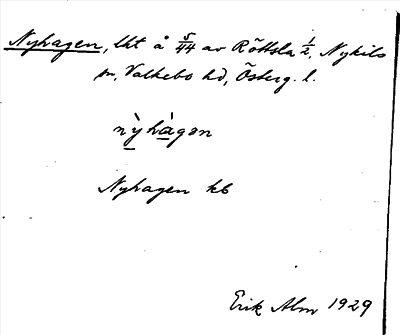 Nyhagen, lht å 5/44 av Röttsla 1/2, Nykils
sn, Valkebo hd, Österg. l.
nỳ̠hà̠gən
Nyhagen kb
Erik Alm 1929